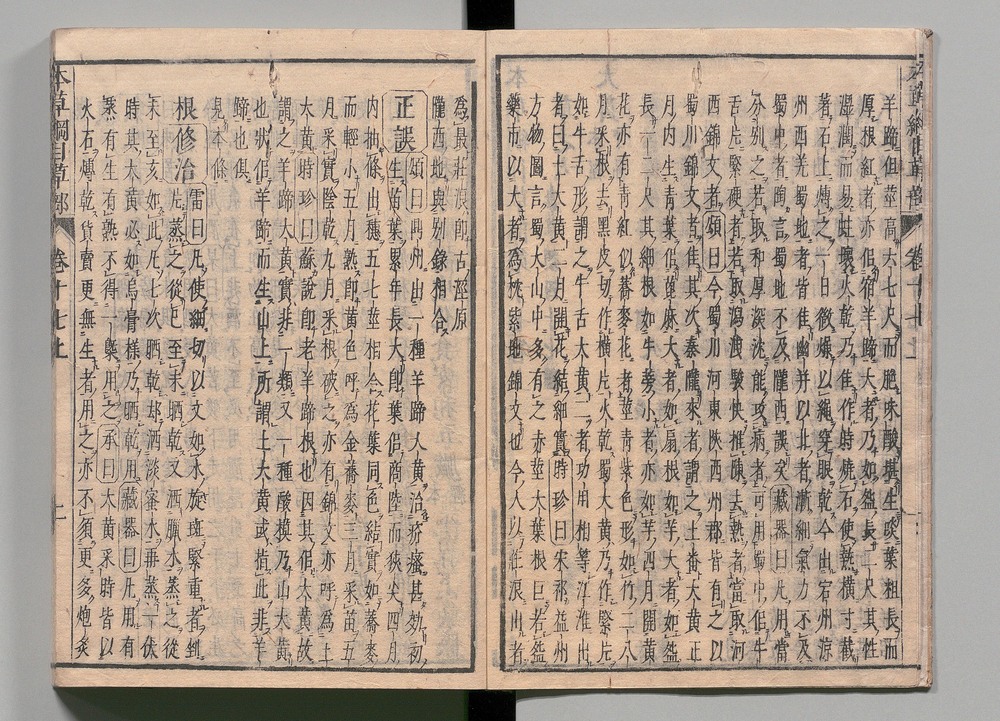 羊蹄但莖高六七尺而脆味酸堪生啖葉粗長而
厚根紅者亦似宿羊蹄大者乃如盌長二尺其性
濕潤而易蛀壞火乾乃佳作時燒石使熱橫寸截
著石上煿之一日微燥以繩穿眼乾今出宕州涼
州西羌蜀地者皆佳幽并以北者漸細氣力不及
蜀中者陶言蜀地不及隴西誤矣藏器曰凡用當
分別之若取和厚深沈能攻病者可用蜀中似牛
舌片緊硬者若取瀉泄駿快推陳去熱者當取河
西錦文者頌曰今蜀川河東陝西州郡皆有之以
蜀川錦文者佳其次秦隴來者謂之土番大黃正
月內生青葉似蓖麻大者如扇根如芋大者如盌
長一二尺其細根如牛蒡小者亦如芋四月開黃
花亦有青紅似蕎麥花者莖青紫色形如竹二八
月采根去黑皮切作橫片火乾蜀大黃乃作緊片
如牛舌形謂之牛舌大黃二者功用相等江淮出
者曰土大黃二月開花結細實時珍曰宋祁益州
方物圖言蜀大山中多有之赤莖大葉根巨若盌
藥市以大者為枕紫地錦文也今人以莊浪出者
為最莊浪即古涇原
隴西地與別錄相合
正誤頌曰鼎州出一種羊蹄大黃治疥瘙甚効初
生苗葉累年長大即葉似商陸而狹尖四月
內抽條出穗五七莖相合花葉同色結實如蕎麥
而輕小五月熟即黃色呼為金蕎麥三月采苗五
月采實陰乾九月采根破之亦有錦文亦呼為土
大黃時珍曰蘇說即老羊蹄根也因其似大黃故
謂之羊蹄大黃實非一類又一種酸模乃山大黃
也狀似羊蹄而生山上所謂土大黃或指此非羊
蹄也俱
見本條
根修治雷曰凡使細切以文如水旋斑緊重者剉
片蒸之從巳至未晒乾又洒臘水蒸之從
未至亥如此凡七次晒乾却洒淡蜜水再蒸一伏
時其大黃必如烏膏樣乃晒乾用藏器曰凡用有
蒸有生有熟不得一槩用之承曰大黃采時皆以
火石煿乾貨賣更無生者用之亦不須更多炮炙
本草綱目草部 卷十七上